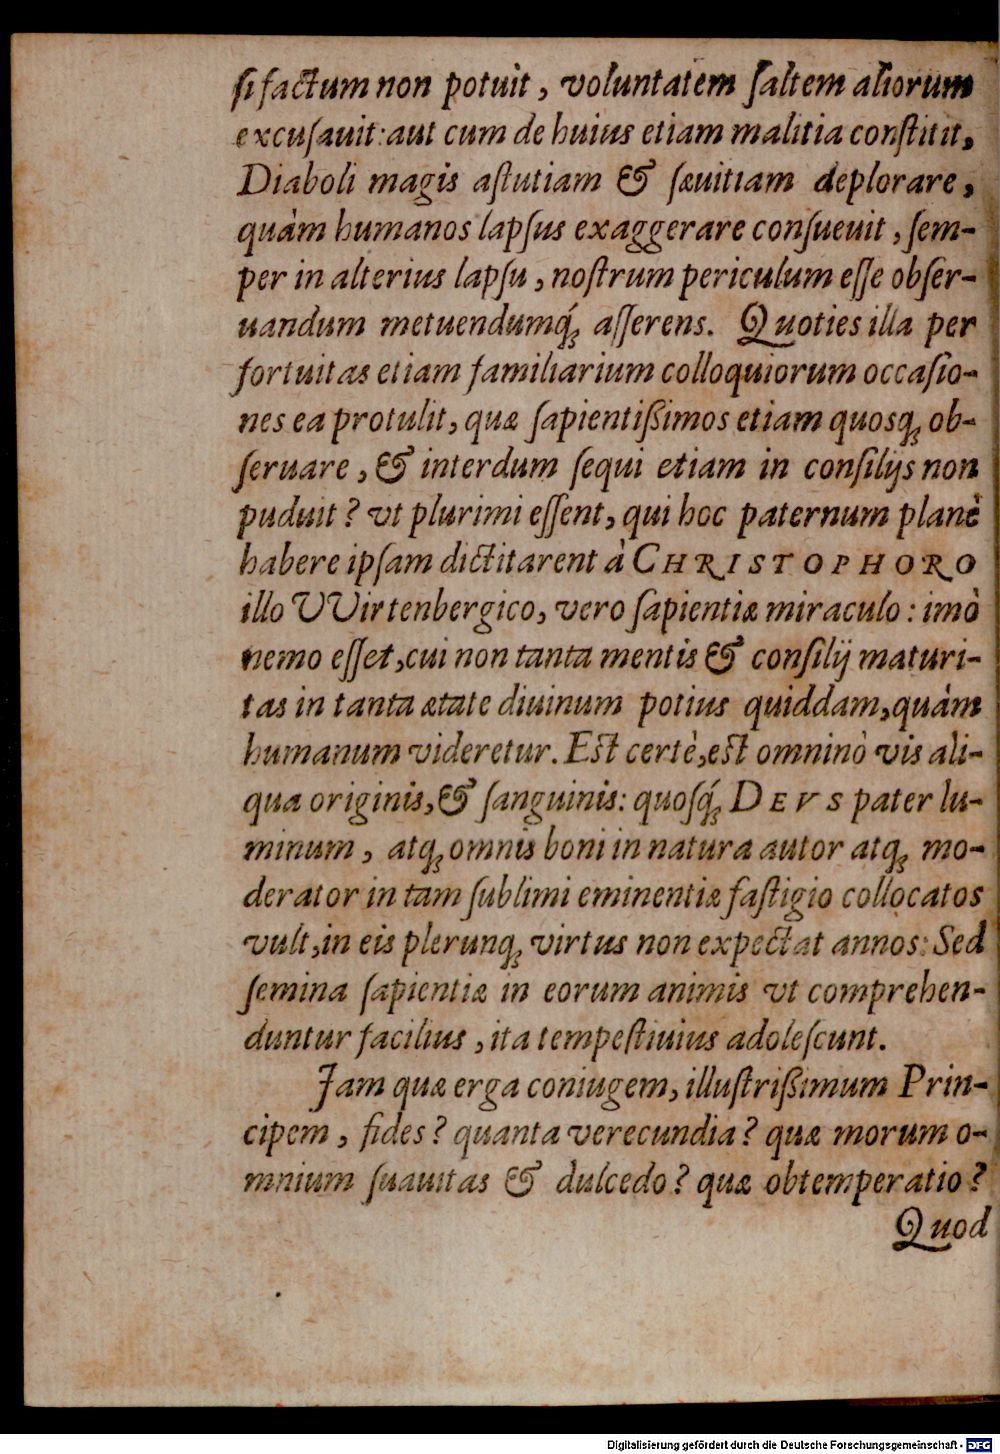 ſi factum non potuit, voluntatem ſaltem aliorum
excuſauit: aut cum de huius etiam malitia conſtitit,
Diaboli magis aſtutiam & ſæuitiam deplorare,
quàm humanos lapſus exaggerare conſueuit, ſem-
per in alterius lapſu, noſtrum periculum eſſe obſer-
uandum metuendumq́ꝫ aſſerens. Quoties illa per
fortuitas etiam familiarium colloquiorum occaſio-
nes ea protulit, quæ ſapientißimos etiam quosqꝫ ob-
ſeruare, & interdum ſequi etiam in conſilijs non
puduit? vt plurimi eſſent, qui hoc paternum planè
habere ipſam dictitarent à CHRISTOPHORO
illo VVirtenbergico, vero ſapientiæ miraculo: imò
nemo eſſet, cui non tanta mentis & conſilij maturi-
tas in tanta ætate diuinum potius quiddam, quàm
humanum videretur. Eſt certè, eſt omninò vis ali-
qua originis, & ſanguinis: quoſq́ꝫ DEVS pater lu-
minum, atqꝫ omnis boni in natura autor atqꝫ mo-
derator in tam ſublimi eminentiæ faſtigio collocatos
vult, in eis plerunqꝫ virtus non expectat annos: Sed
ſemina ſapientiæ in eorum animis vt comprehen-
duntur facilius, ita tempeſtiuius adoleſcunt.
Jam quæ erga coniugem, illuſtrißimum Prin-
cipem, fides? quanta verecundia? quæ morum o-
mnium ſuauitas & dulcedo? quæ obtemperatio?
Quod
Digitalisierung gefördert durch die Deutsche Forschungsgemeinschaft - DFG